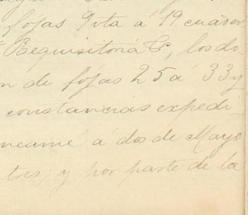 fojas 9 vta á 19 cuader
Requisitoria &, los do
n de fojas 25 a 33 y
constancias expedi
ncamé á dos de Mayo
tres, y por parte de la